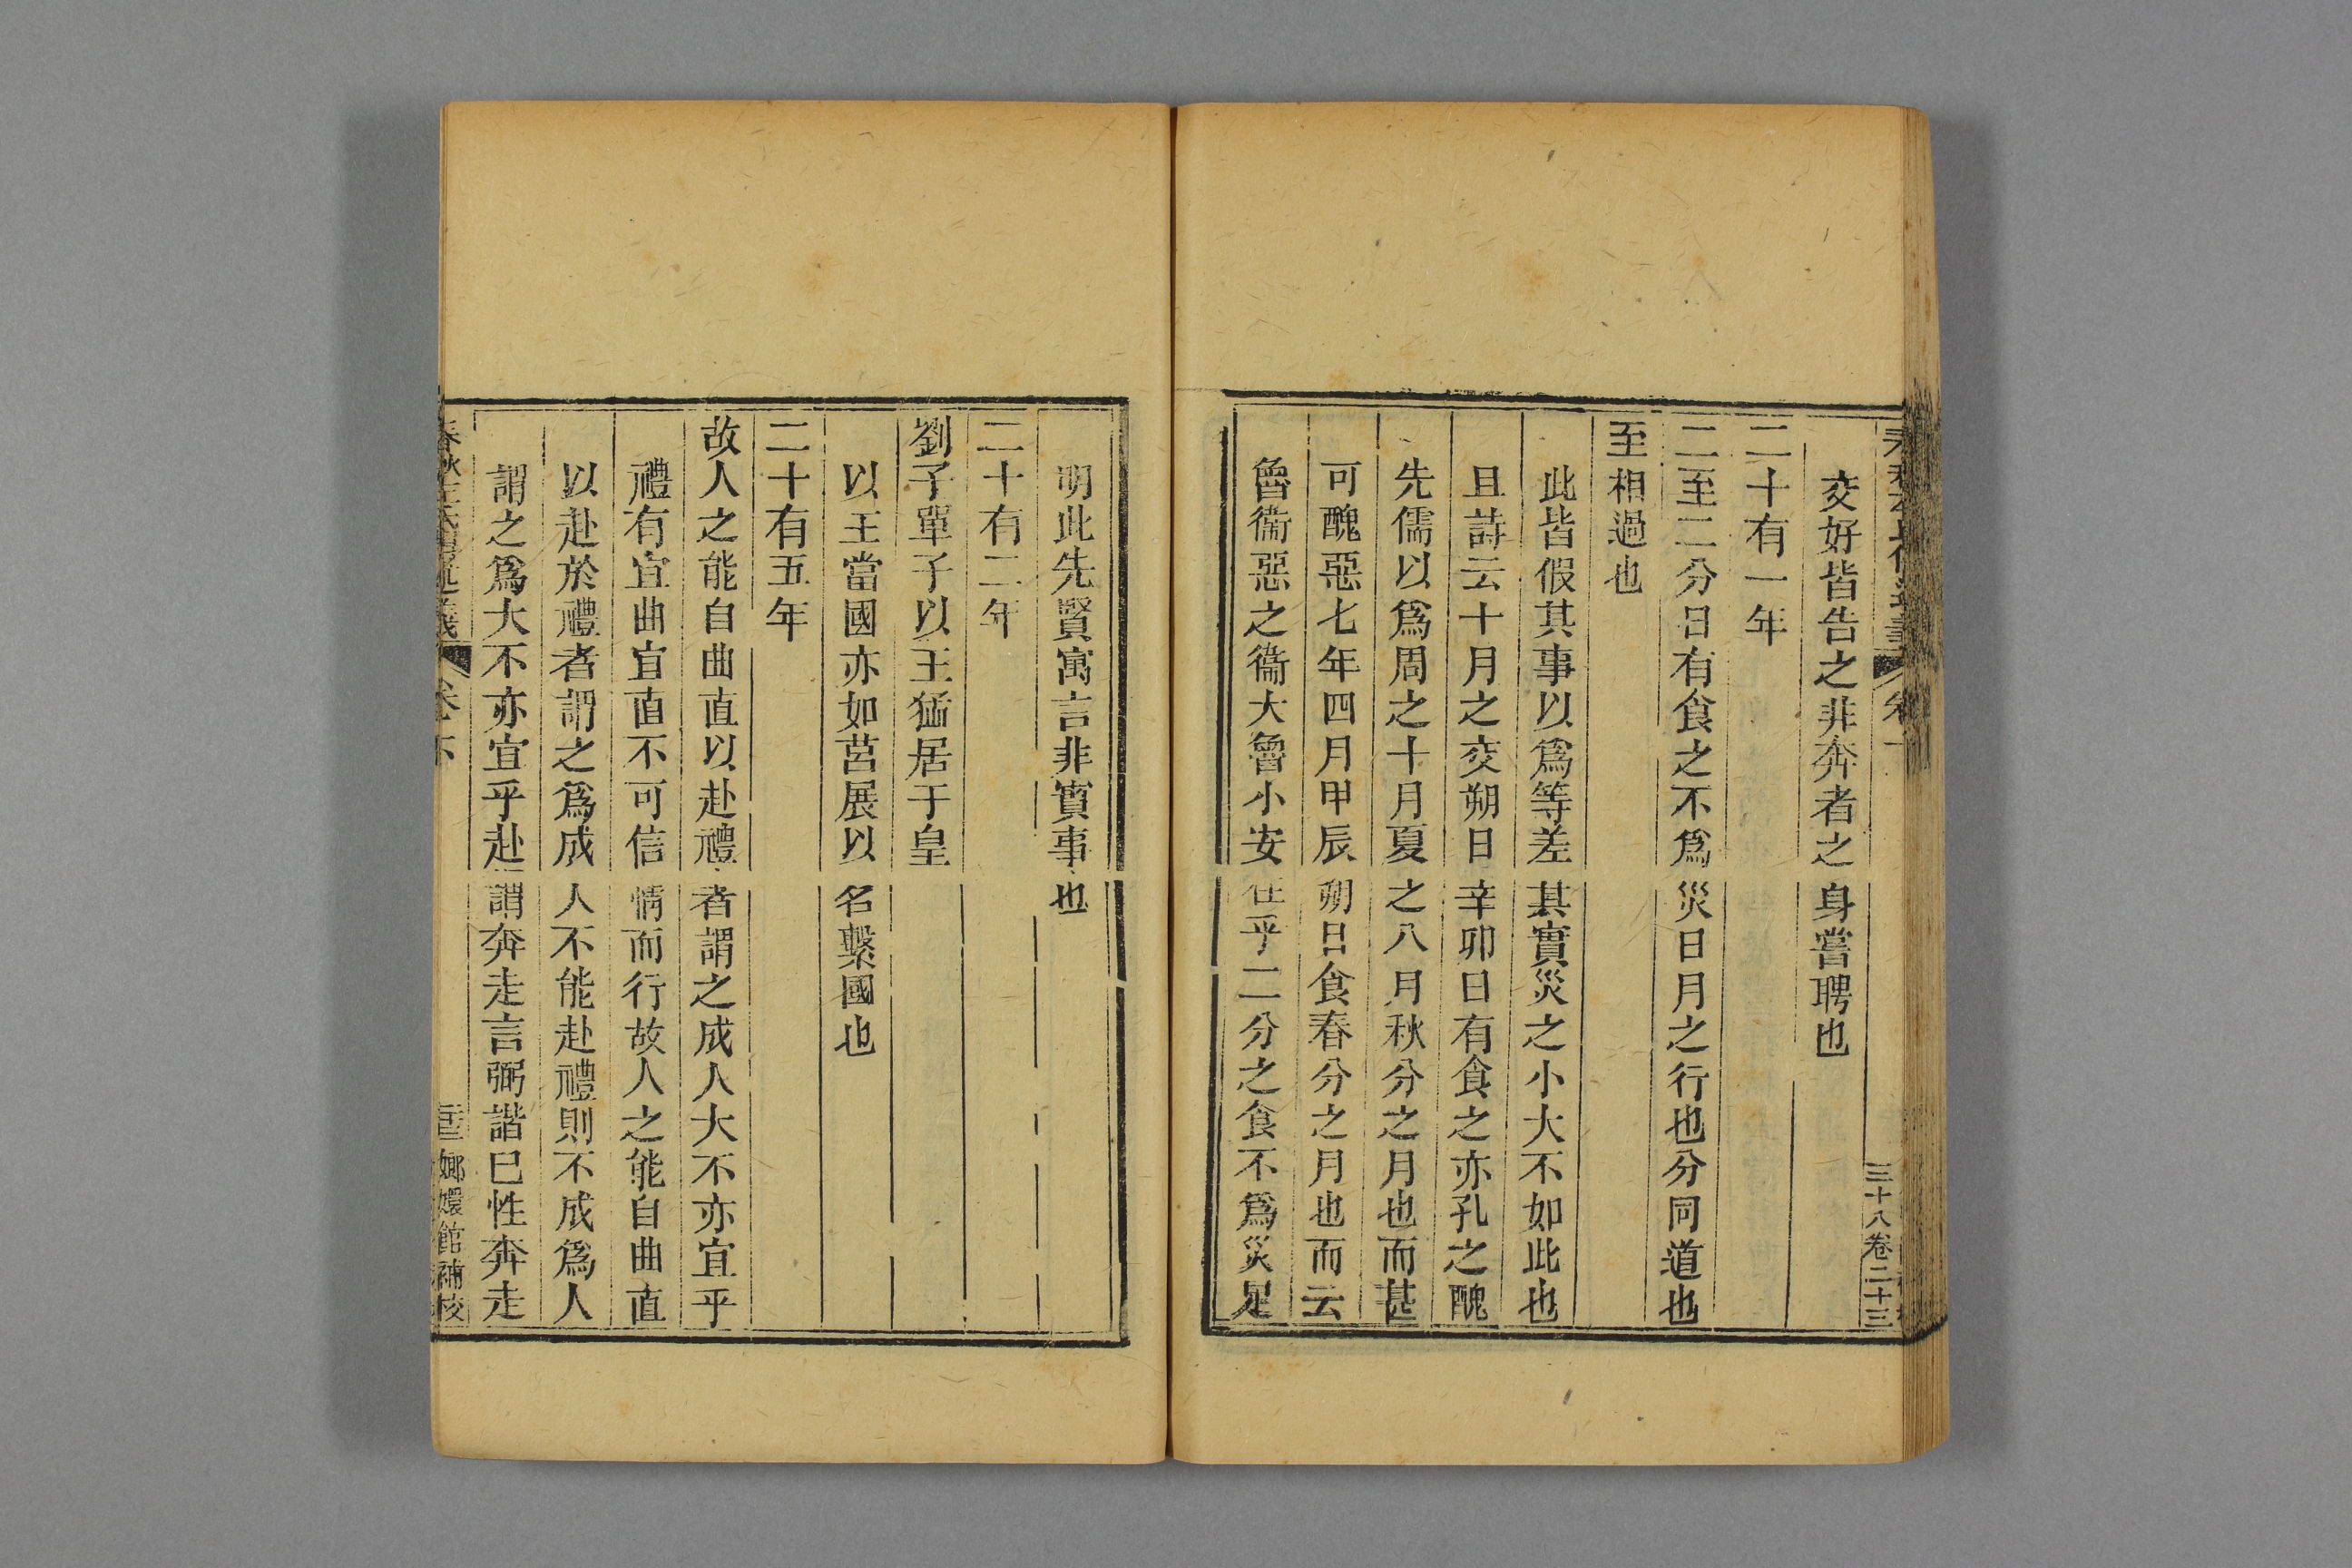 三十八卷二十三
交好皆告之非奔者之身嘗聘也
二十有一年
二至二分日有食之不爲災日月之行也分同道也
至相過也
此皆假其事以爲等差其實災之小大不如此也
且詩云十月之交朔日辛卯日有食之亦孔之醜
先儒以爲周之十月夏之八月秋分之月也而甚
可醜惡七年四月甲辰朔日食春分之月也而云
魯衞惡之衞大魯小安在乎二分之食不爲災足
明此先賢寓言非實事也
二十有二年
劉子單子以王猛居于皇
以王當國亦如莒展以名繫國也
二十有五年
故人之能自曲直以赴禮者謂之成人大不亦宜乎
禮有宜曲宜直不可信情而行故人之能自曲直
以赴於禮者謂之爲成人不能赴禮則不成爲人
謂之爲大不亦宜乎赴謂奔走言弼諧巳性奔走
嫏嬛館補校